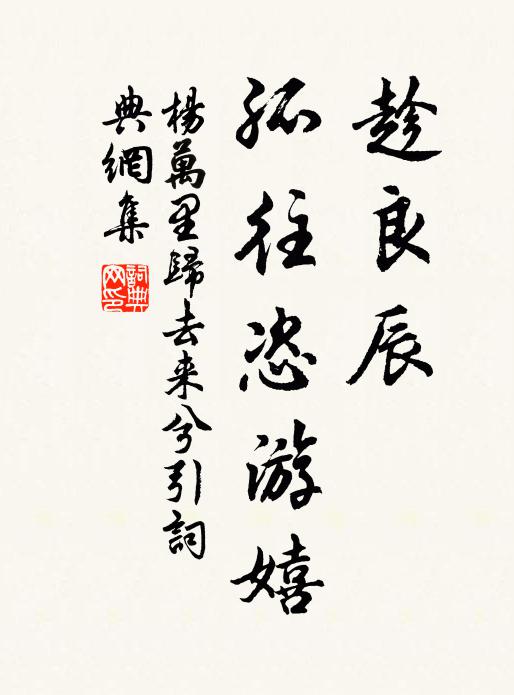 趁良辰
孤往恣游嬉
楊萬里歸去来兮引詞
典網集
詞典網印